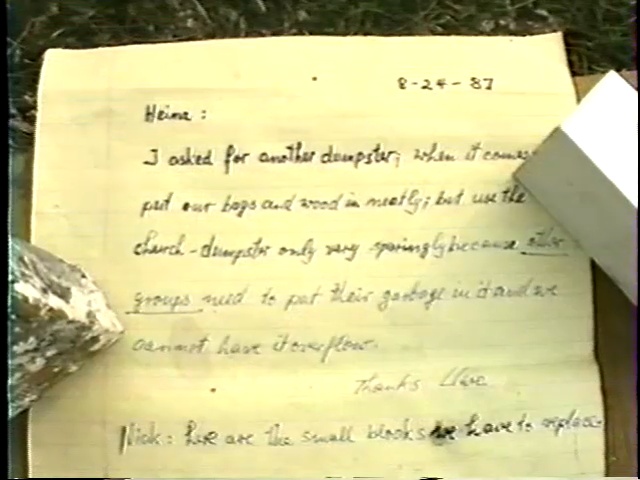 8-24-87
Heinz :
I asked for another dumpster; when it comes
put our bags and wood in neatly; but use the
church-dumpster only very sparingly because other
groups need to put their garbage in it and we
cannot have it overflow.
Thanks
Nick: here are the small blocks we have to replace